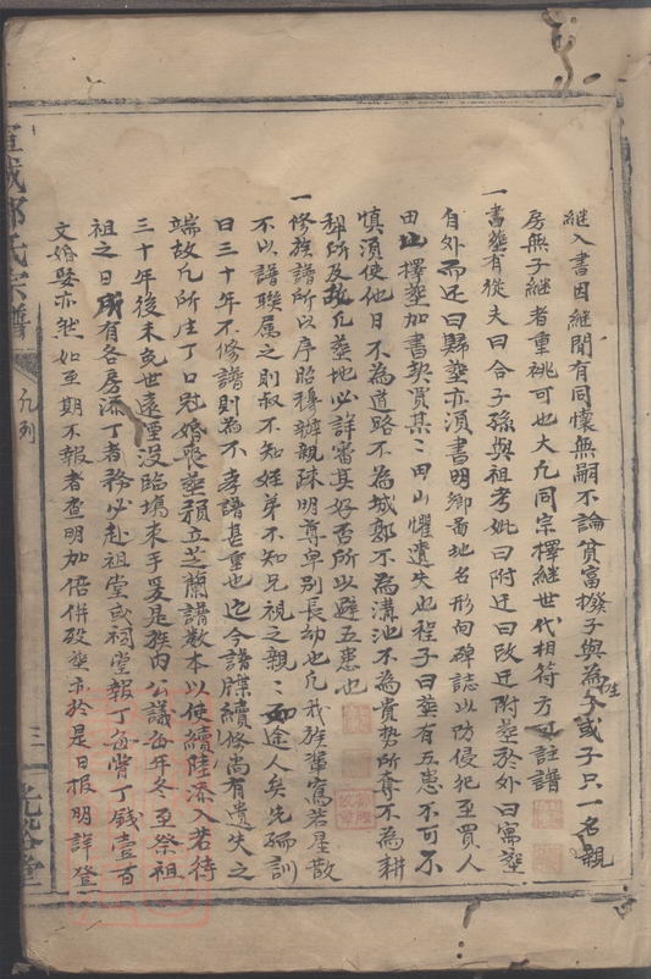 継入書因継間有同懷無嗣不論貧富撥子與為子或子只一名親
房無子継者重祧可也大凡同宗擇継世代相符方可註譜
一書塟有從夫曰合子孫與祖考妣曰附迁曰改迁附塟於外曰寓塟
自外而还曰歸塟亦須書明鄉啚地名形向碑誌以防侵犯至買人
田山擇塟加書契買某〻田山懼遺失也程子曰塟有五患不可不
慎須使他日不為道路不為城郭不為溝池不為貴勢所奪不為耕
犂所及我凡塟地必詳審其好否所以避五患也
一修族譜所以序昭穆辦親疎明尊卑別長幼也凡我族輩寓若星散
不以譜聯属之則叔不知姪弟不知兄視之親〻如途人矣先儒訓
曰三十年不修譜則為不孝譜甚重也迄今譜牒續修尚有遺失之
端故凡所生丁口冠婚喪塟預立芝蘭譜数本以便續陸添入若待
三十年後未免世遠湮没臨塲束手爰是族内公議每年冬至祭祖
祖之日所有各房添丁者務必赴祖堂或祠堂報丁每甞丁錢壹百
文婚娶亦然如至期不報者查明加倍併殁塟亦於是日报明詳登
宗譜
凡列
三